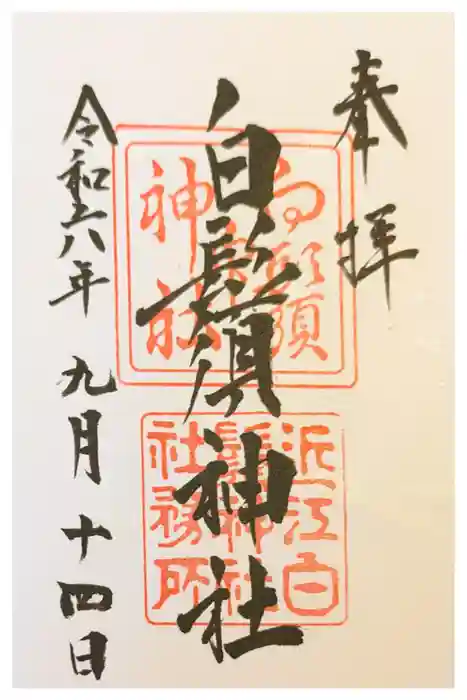 奉拝
白鬚神社
令和六年 九月十四日
白鬚
神社
近江白
鬚神社
社務所